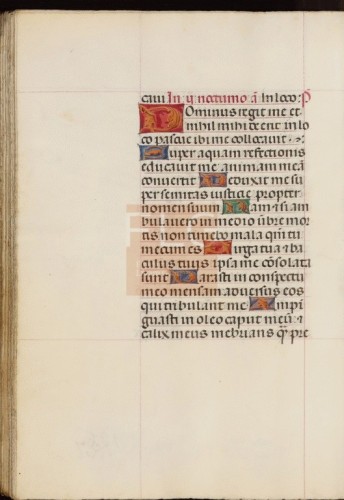 caui In ij nocturno añ In loco: P
DOminus regit me et
nihil mihi deerit in lo
co pascue ibi me collocauit.
Super aquam refectionis
educauit me animam meã
conuertit Deduxit me su
per semitas iusticie propter
nomen suum Nam et si am
bulauero in medio ũbre mor
tis non timebo mala qm̃ tu
mecum es Uirga tua et ba
culus tuus ipsa me cõsolata
sunt Parasti in conspectu
meo mensam aduersus eos
qui tribulant me Impi
guasti in oleo caput meũ et
calix meus inebrians q̃ pre